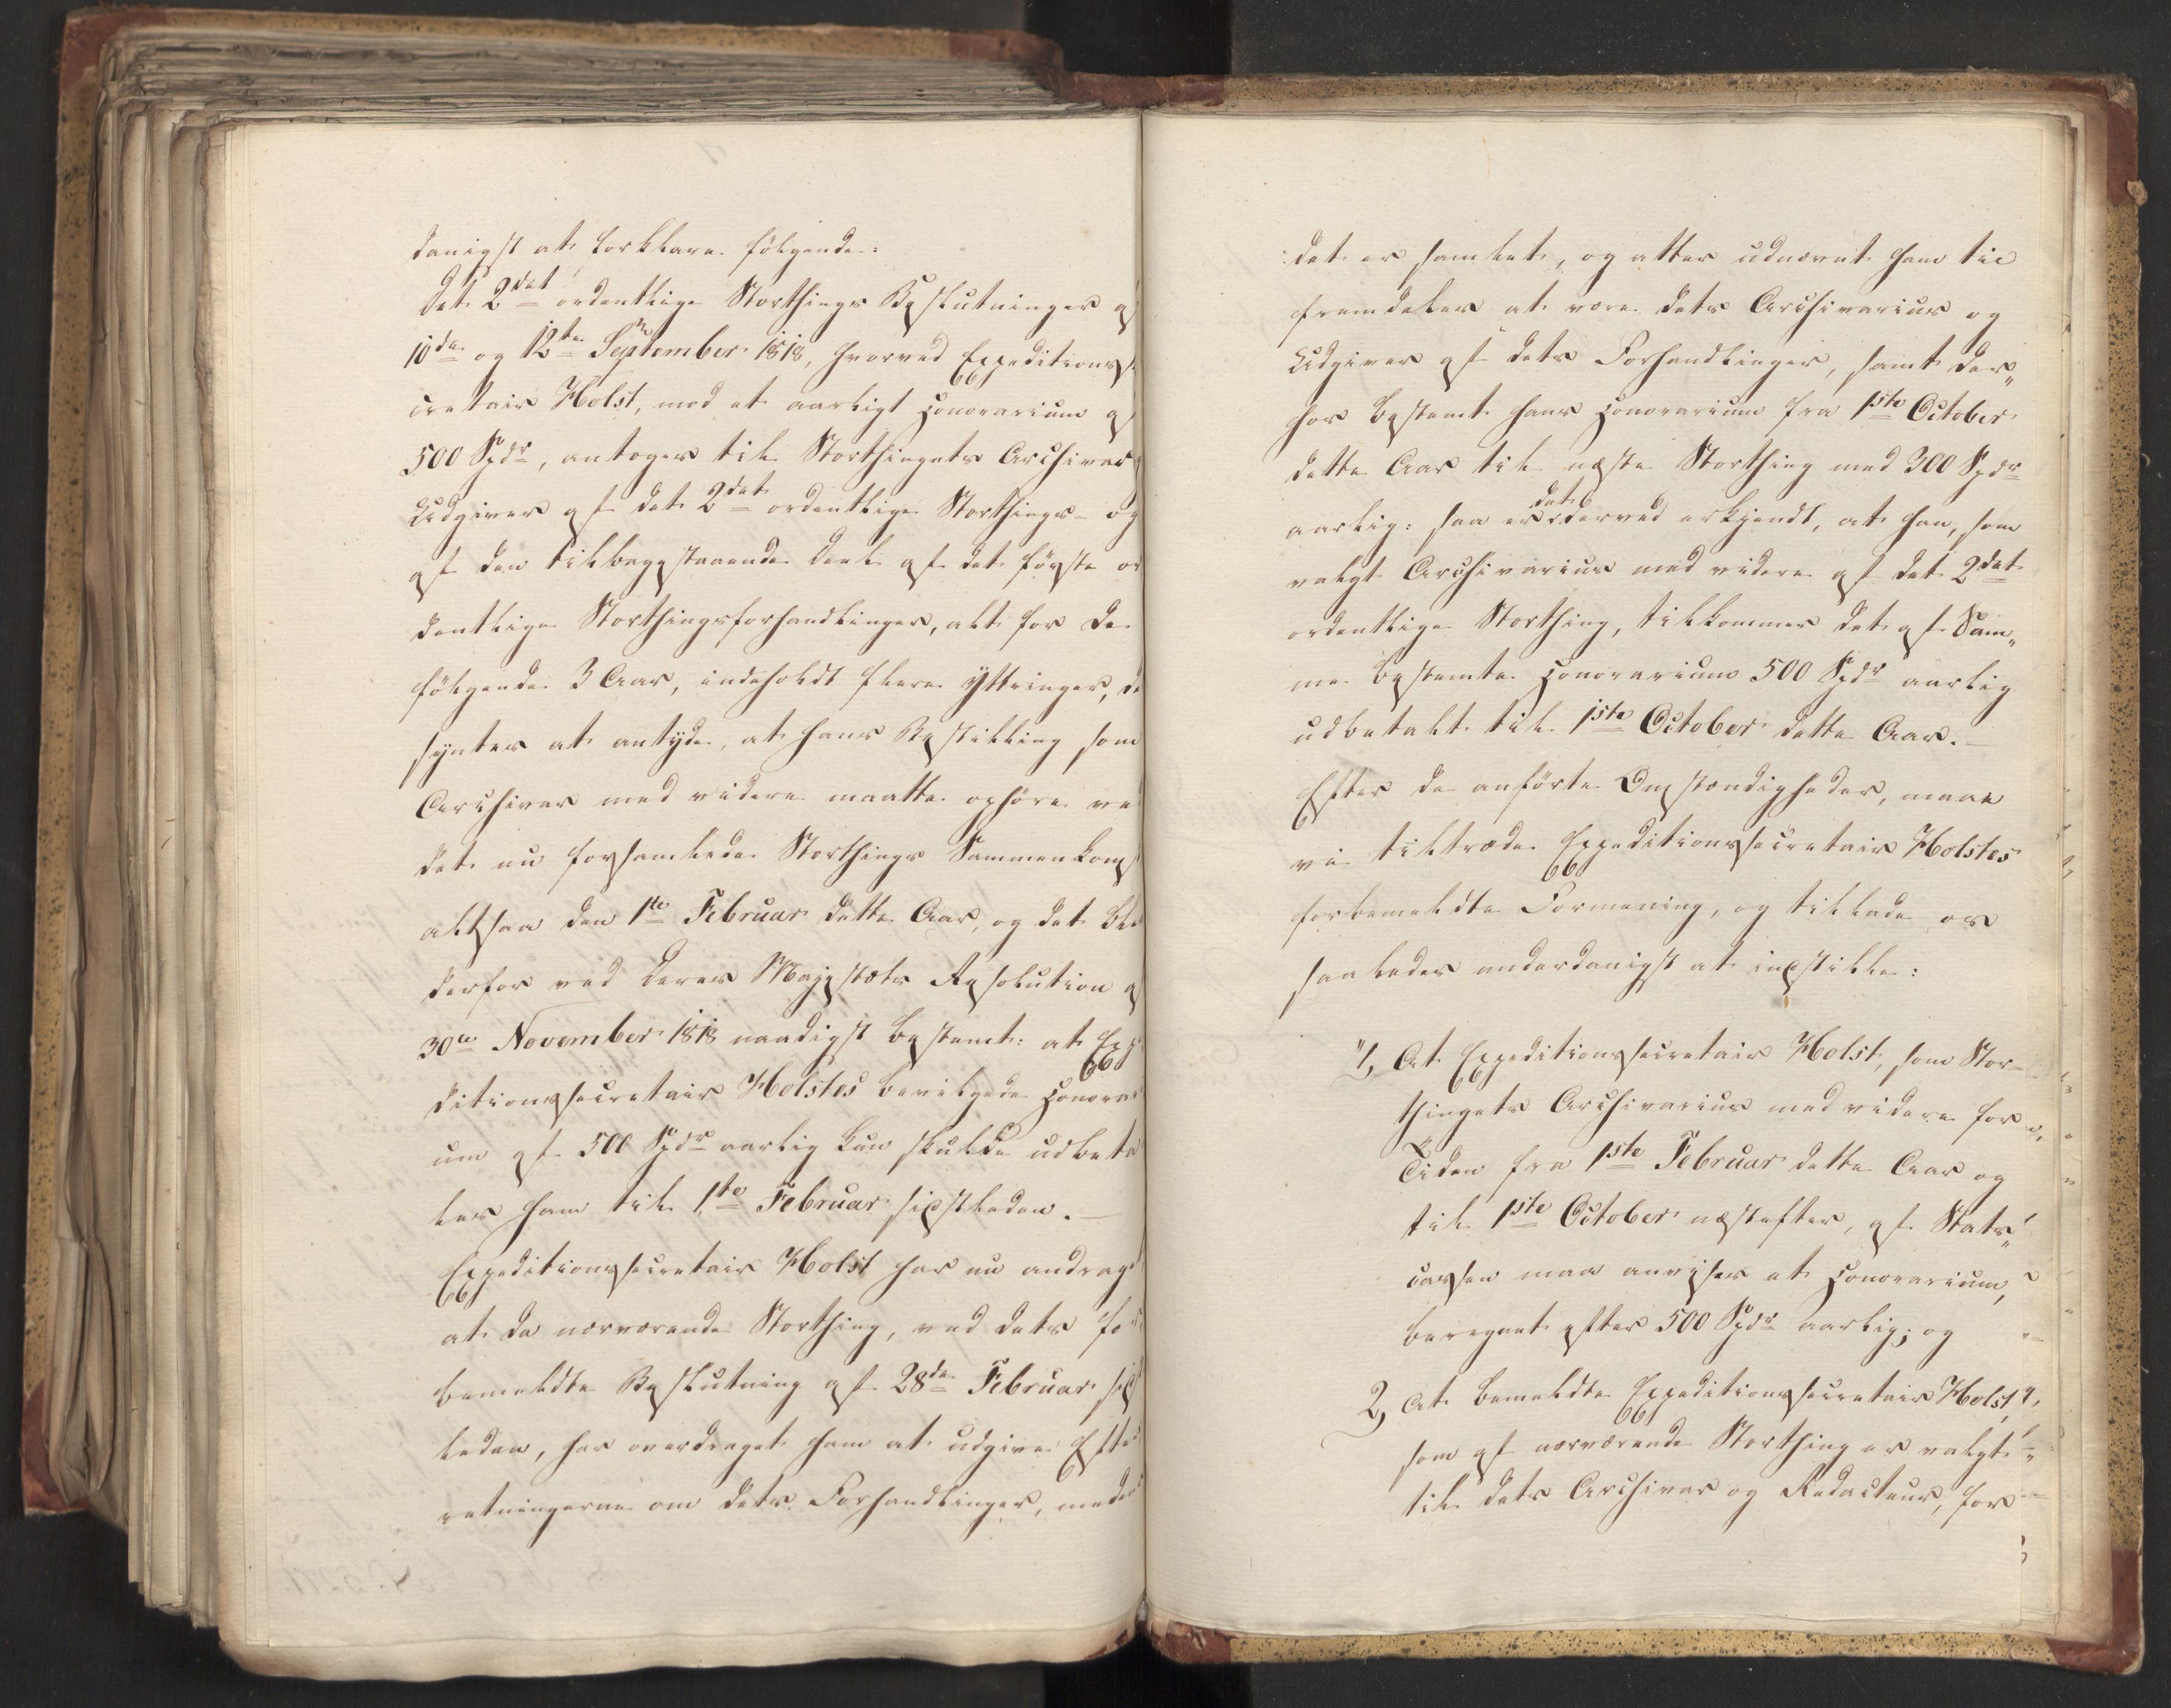 danigst at forklare følgende:
Det 2det ordentlige Storthings Beslutninger af
10de og 12te September 1818, hvorved Expeditionsse
cretair Holst, mod et aarligt Honorarium af
500 Spdr, antoges til Storthingets Archivar
Udgiver af det 2det ordentlige Storthings- og
af den tilbagestaaende Deel af det første or
dentlige Storthingsforhandlinger, alt for de
følgende 3 Aar, indeholdt flere Yttringer, de
syntes at antyde, at hans Bestilling som
Archivar med videre maatte ophøre ved
det nu forsamlede Storthings Sammenkomst
altsaa den 1te Februar dette Aar, og det blev
derfor ved Deres Majestæts Resolution af
30te November 1818 naadigst bestemt: at Expe
ditionssecretair Holstes bevilgede Honorari
um af 500 Spdr aarlig kun skulde udbeta
les ham til 1te Februar sidstleden.
Expeditionssecretair Holst har nu andraget
at da nærværende Storthing, ved dets for
bemeldte Beslutning af 28de Februar sidst
leden, har overdraget ham at udgive Efter
retningerne om dets Forhandlinger, meden
det er samlet, og atter udnævnt ham til
fremdeles at være dets Archivarius og
Udgiver af dets Forhandlinger, samt der„
hos bestemt hans Honorarium fra 1ste October
dette Aar til næste Storthing med 300 Spdr
aarlig: saa er det derved erkjendt, at han, som
valgt Archivarius med videre af det 2det
ordentlige Storthing, tilkommer det af Sam„
me bestemte Honorarium 500 Spdr aarlig
udbetalt til 1ste October dette Aar.
Efter de anførte Omstændigheder, maae
vi tiltræde Expeditionssecretair Holstes
forbemeldte Formening, og tillade os
saaledes underdanigst at indstille:
"1, At Expeditionssecretair Holst, som Stor-
thingets Archivarius med videre for
Tiden fra 1ste Februar dette Aar og
til 1ste October næstefter, af Stats„
cassen maa anvises et Honorarium,
beregnet efter 500 Spdr aarlig; og
2, At bemeldte Expeditionssecretair Holst,
som af nærværende Storthing er valgt
til dets Archivar og Redacteur, for